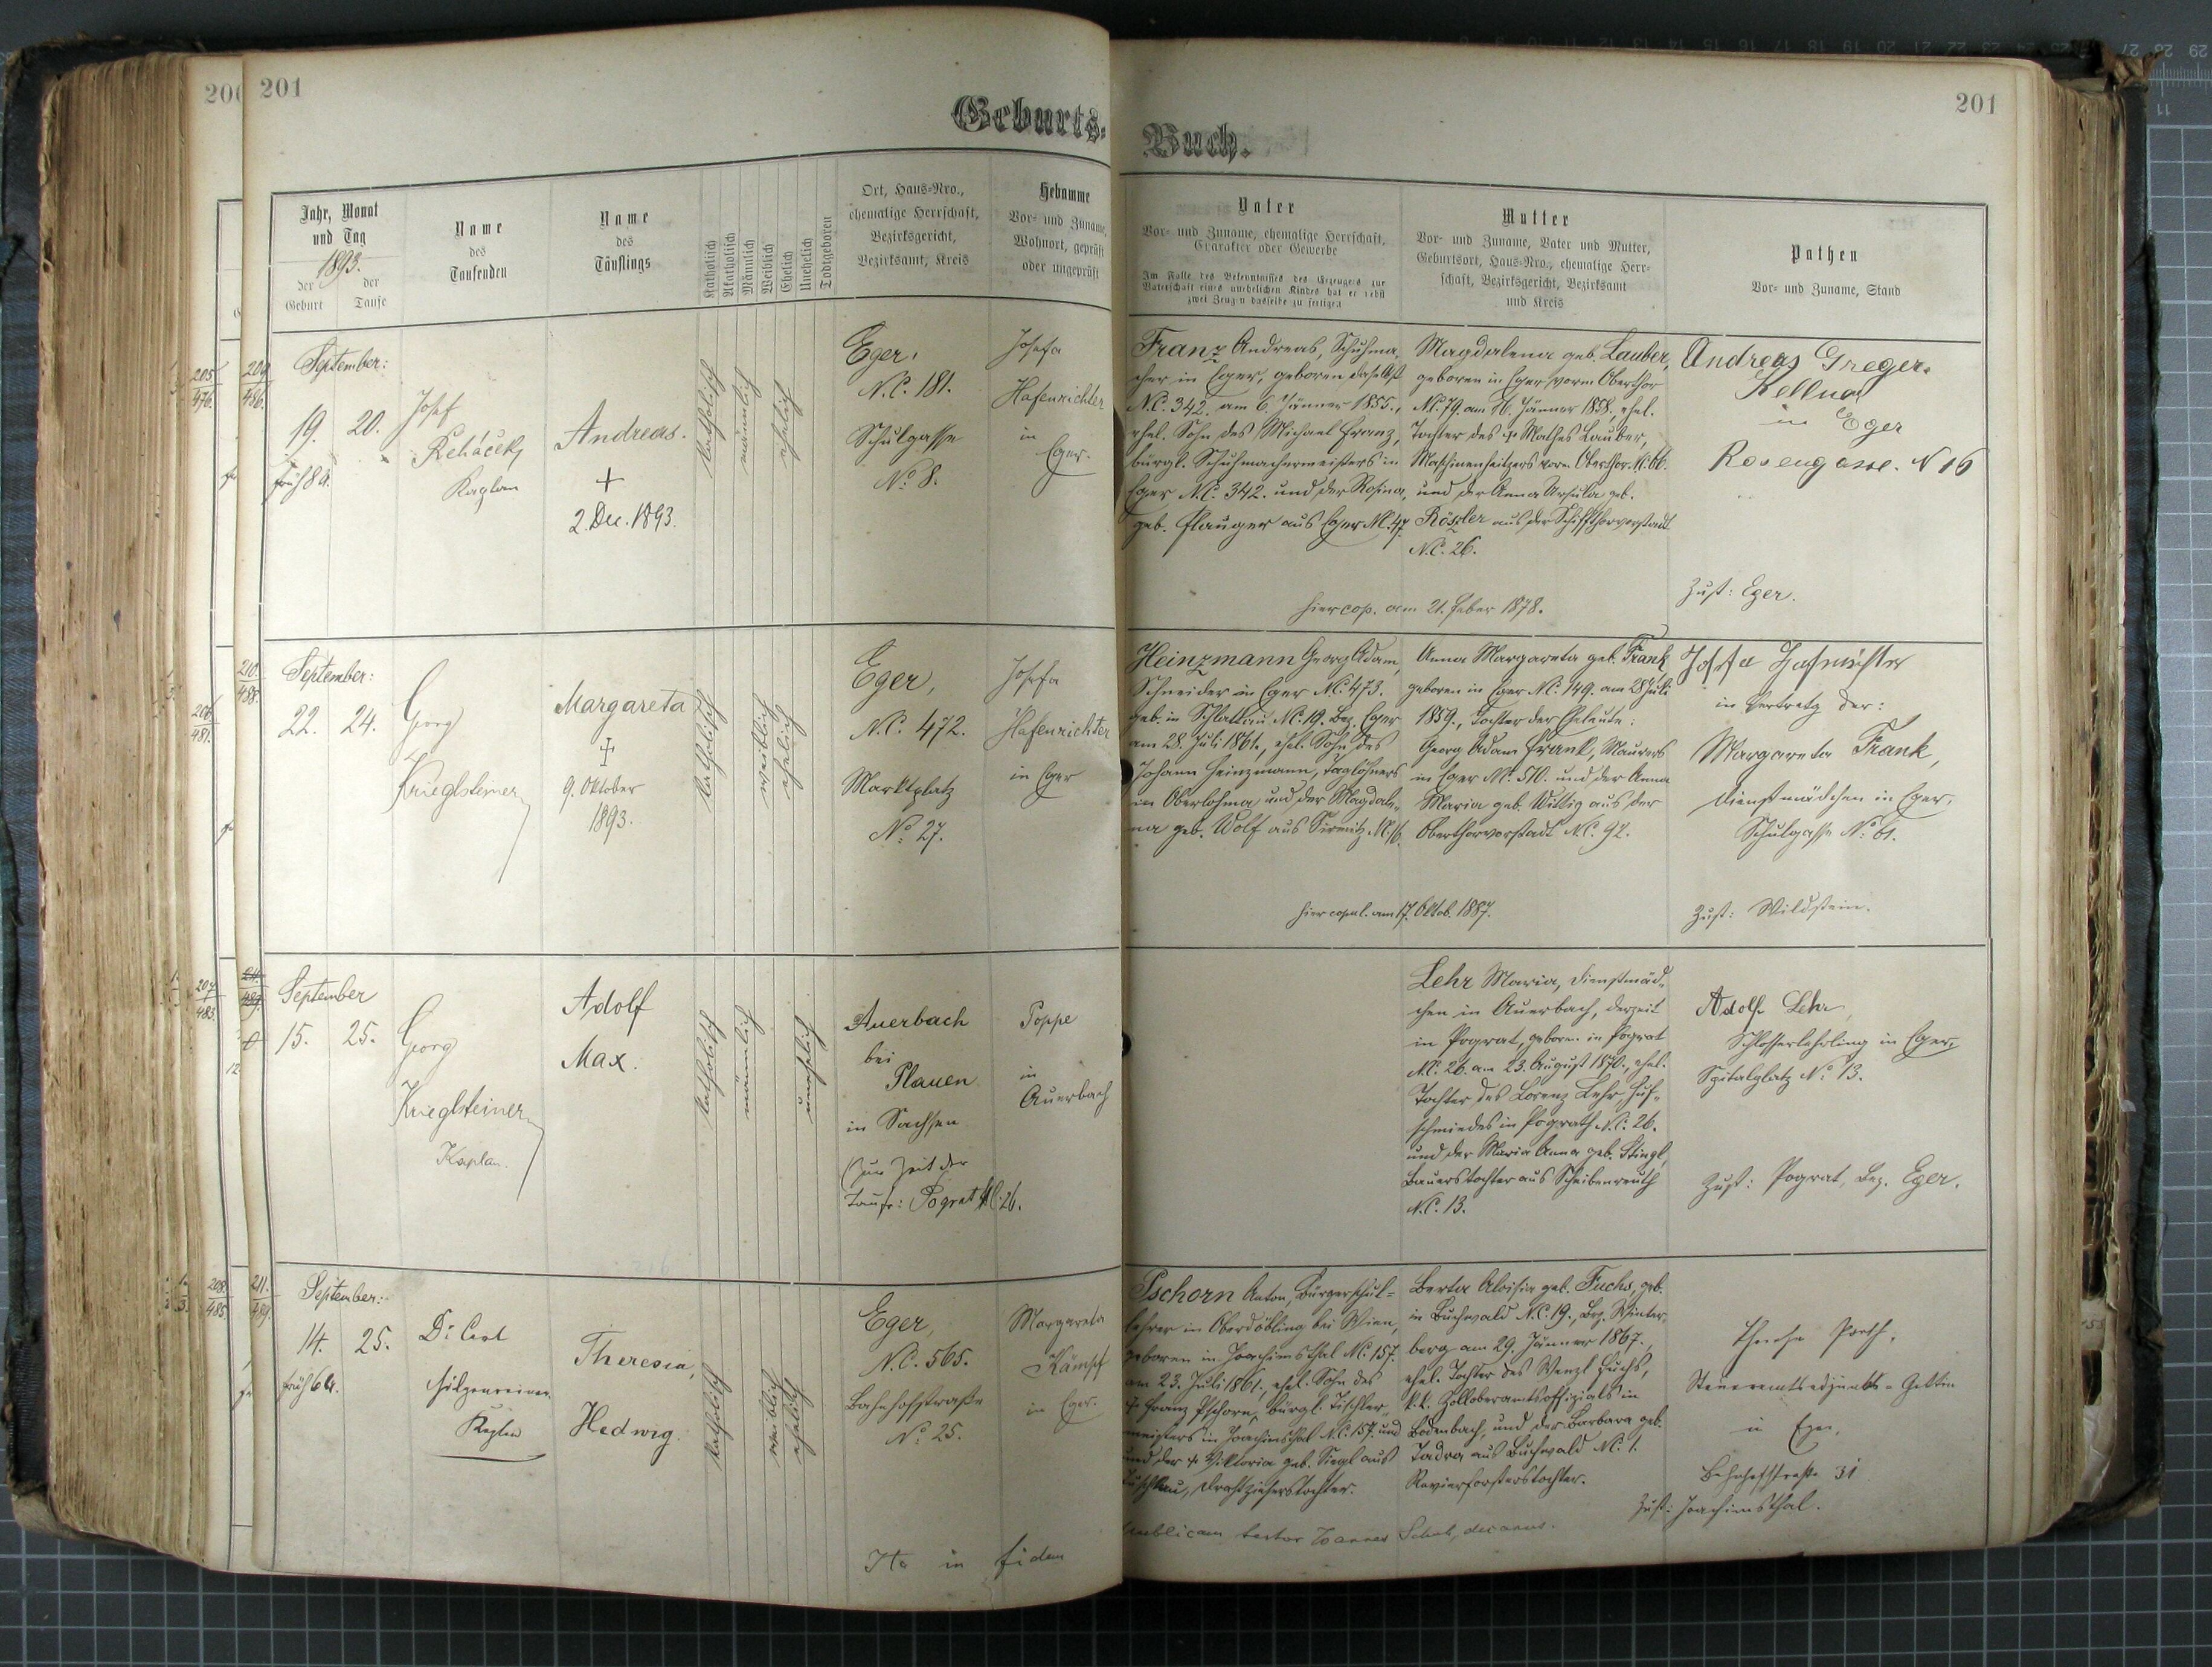 201
201
Geburts-
Buch.
Jahr, Monat
und Tag
1893.
der
Geburt
der
Taufe
Name
des
Taufenden
Name
des
Täuflings
Katholisch
Akatholisch
Männlich
Weiblich
Ehelich
Unehelich
Todtgeboren
Ort, Haus-Nro.,
ehemalige Herrschaft,
Bezirksgericht,
Bezirksamt, Kreis
Hebamme
Vor- und Zuname,
Wohnort, geprüft
oder ungeprüft
Vater
Vor- und Zuname, ehemalige Herrschaft,
Charakter oder Gewerbe
Im Falle des Bekenntnisses des Erzeugers zur
Vaterschaft eines unehelichen Kindes hat er nebst
zwei Zeugen dasselbe zu fertigen
Mutter
Vor- und Zuname, Vater und Mutter,
Geburtsort, Haus-Nro., ehemalige Herr-
schaft, Bezirksgericht, Bezirksamt
und Kreis
Pathen
Vor- und Zuname, Stand
September:
19.
20.
früh 8
Josef
Řeháček,
Kaplan
Andreas.
+
2. Dec. 1893.
katholisch
männlich
ehelich
Eger,
N.C. 181.
Schulgasse
No 8.
Josefa
Hafenrichter
in
Eger.
Franz Andreas, Schuhma-
cher in Eger, geboren daselbst
N.C. 342. am 6. Jänner 1855.,
ehel. Sohn des Michael Franz,
bürgl. Schuhmachermeisters in
Eger N.C. 342. und der Rosina,
geb. Flauger aus Eger N.C. 47.
Magdalena geb. Lauber,
geboren in Eger vorm Oberthor
N.C. 79. am Jänner 1858, ehel.
Tochter des + Mathes Lauber,
Maschinenheitzers vorm Oberthor N.C. 66.
und der Anna Ursula geb.
Rössler aus der Schiffthorvorstadt
N.C. 26.
hier cop. am 21. Feber 1878.
Andreas Greger.
Kellner
in Eger
Rosengasse. N 16
Zust: Eger.
210.
488.
September:
22.
24.
Georg
Krieglsteiner
Margareta
+
9. Oktober
1893.
katholisch
weiblich
ehelich
Eger,
N.C. 472.
Marktplatz
No 27.
Josefa
Hafenrichter
in Eger
Heinzmann Georg Adam,
Schneider in Eger N.C. 473.
geb. in Schlattau N.C. 19. Bez. Eger
am 28. Juli 1861., ehel. Sohn des
Johann Heinzmann, Taglöhners
in Oberlohma und der Magdale-
na geb. Wolf aus Sirmitz N.C. 16.
Anna Margareta geb. Frank,
geboren in Eger N.C. 149. am 28 Juli
1859., Tochter der Eheleute:
Georg Adam Frank, Maurers
in Eger N.C. 510. und der Anna
Maria geb. Wittig aus der
Oberthorvorstadt N.C. 92.
hier copul. am 17. Oktob. 1887.
Josefa Hafenrichter
in Vertretg der:
Margareta Frank,
Dienstmädchen in Eger,
Schulgasse No 61.
Zust: Wildstein.
September
15.
25.
Georg
Krieglsteiner
Kaplan.
Adolf
Max.
katholisch
männlich
unehelich
Auerbach
bei
Plauen
in Sachsen
(Zur Zeit der
Taufe: Pograt N.C. 26.
Poppe
in
Auerbach
Lehr Maria, Dienstmäd-
chen in Auerbach, derzeit
in Pograt, geboren in Pograt
N.C. 26. am 23. August 1870., ehel.
Tochter des Lorenz Lehr, Huf-
schmiedes in Pograth N.C. 26.
und der Maria Anna geb. Stingl,
Bauerstochter aus Scheibenreuth
N.C. 13.
Adolf Lehr,
Schlosserlehrling in Eger,
Spitalplatz No 13.
Zust: Pograt, Bez. Eger.
211.
489.
September:
14.
25.
früh 6
Dr. Carl
Hilgenreiner
Kaplan
Theresia,
Hedwig.
katholisch
weiblich
ehelich
Eger,
N.C. 565.
Bahnhofstraße
No 25.
Margareta
Kämpf
in Eger.
Pschorn Anton, Bürgerschul-
lehrer in Oberdöbling bei Wien,
geboren in Joachimsthal N.C. 157.
am 23. Juli 1861., ehel. Sohn des
+ Franz Pschorn, bürgl. Tischler-
meisters in Joachimsthal N.C. 157. und
und der + Viktoria geb. Siegl aus
Drahtzieherstochter.
Berta Aloisia geb. Fuchs, geb.
in Buchwald N.C. 19., Bez. Winter-
berg am 29. Jänner 1867.,
ehel. Tochter des Wenzl Fuchs,
k.k. Zolloberamtsoffizials in
Bodenbach, und der Barbara geb.
Tadra aus Buchwald N.C. 1.
Revierförsterstochter.
Steueramtsadjunkts-Gattin
in Eger,
Bahnhofstraße 31
Zust: Joachimsthal.
Ita in fidem
publicam testor Joannes decanus.